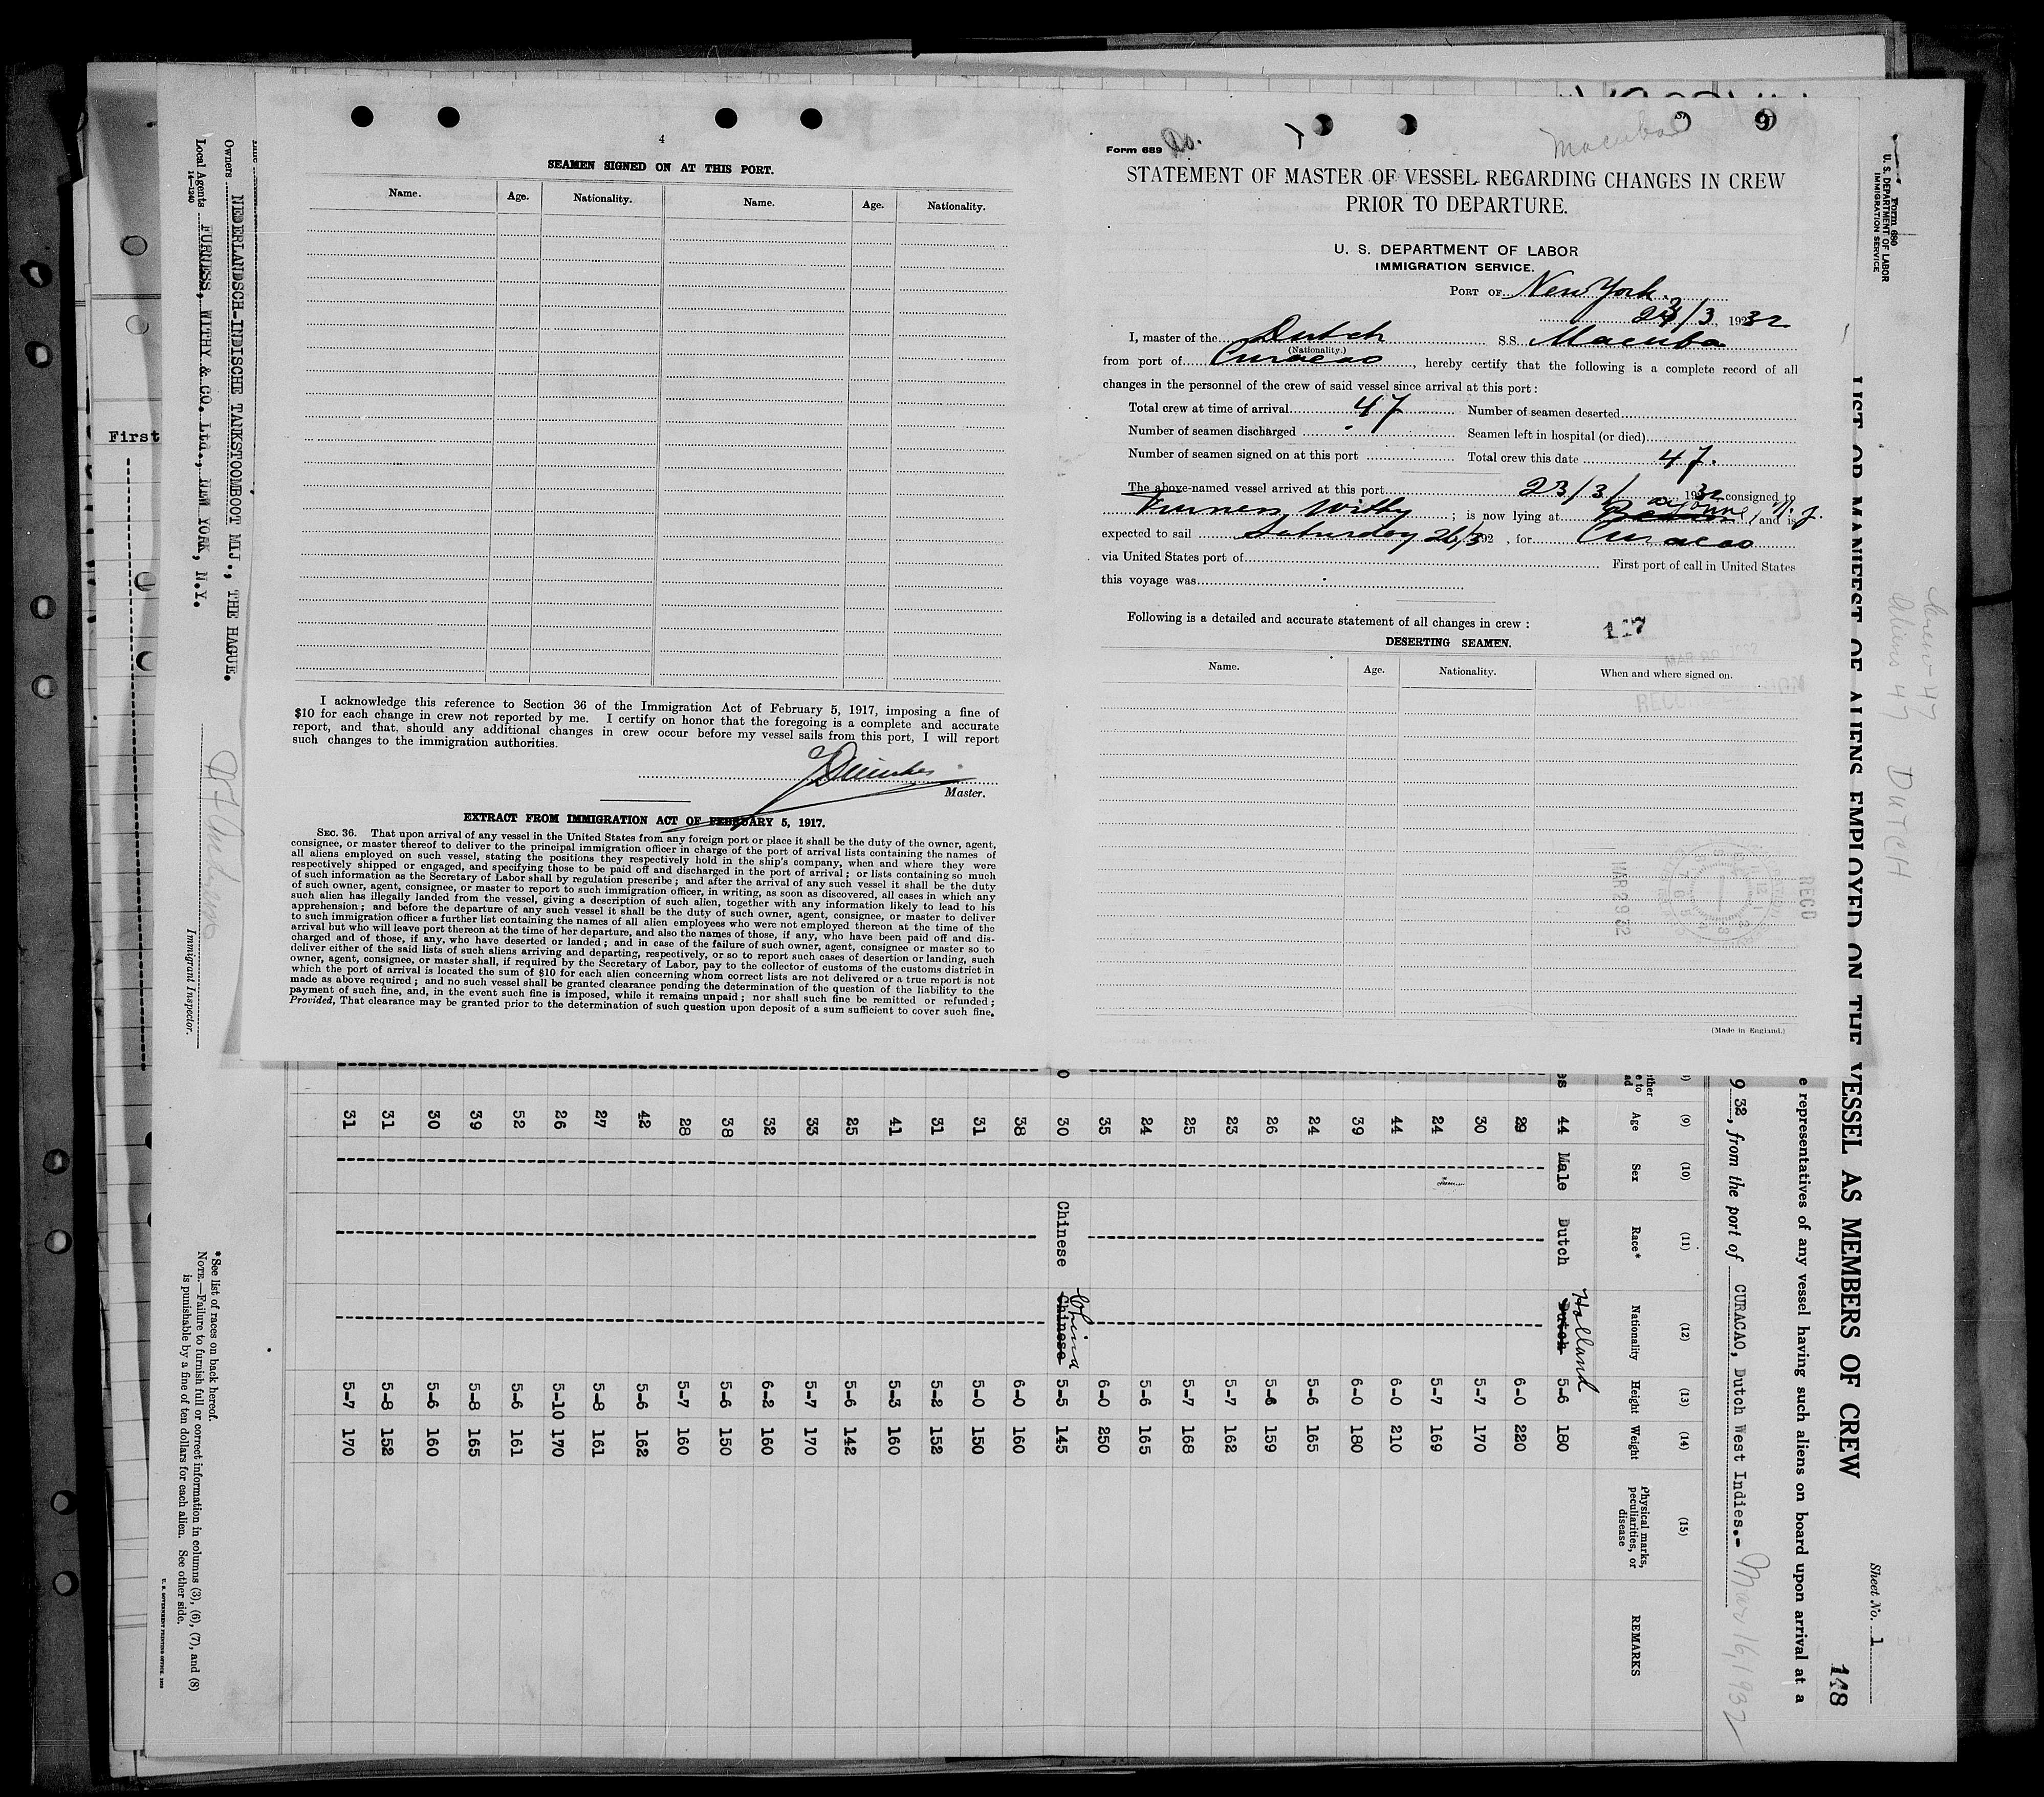 4
SEAMEN SIGNED ON AT THIS PORT.
Name. Age. Nationality. Name. Age. Nationality.
I acknowledge this reference to Section 36 of the Immigration Act of February 5, 1917, imposing a fine of
$10 for each change in crew not reported by me. I certify on honor that the foregoing is a complete and accurate
report, and that, should any additional changes in crew occur before my vessel sails from this port, I will report
such changes to the immigration authorities.
Master.
EXTRACT FROM IMMIGRATION ACT OF FEBRUARY 5, 1917.
SEC. 36. That upon arrival of any vessel in the United States from any foreign port or place it shall be the duty of the owner, agent,
consignee, or master thereof to deliver to the principal immigration officer in charge of the port of arrival lists containing the names of
all aliens employed on such vessel, stating the positions they respectively hold in the ship's company, when and where they were
respectively shipped or engaged, and specifying those to be paid off and discharged in the port of arrival; or lists containing so much
of such information as the Secretary of Labor shall by regulation prescribe; and after the arrival of any such vessel it shall be the duty
of such owner, agent, consignee, or master to report to such immigration officer, in writing, as soon as discovered, all cases in which any
such alien has illegally landed from the vessel, giving a description of such alien, together with any information likely to lead to his
apprehension; and before the departure of any such vessel it shall be the duty of such owner, agent, consignee, or master to deliver
to such immigration officer a further list containing the names of all alien employees who were not employed thereon at the time of the
arrival but who will leave port thereon at the time of her departure, and also the names of those, if any, who have been paid off and dis-
charged and of those, if any, who have deserted or landed; and in case of the failure of such owner, agent, consignee or master so to
deliver either of the said lists of such aliens arriving and departing, respectively, or so to report such cases of desertion or landing, such
owner, agent, consignee, or master shall, if required by the Secretary of Labor, pay to the collector of customs of the customs district in
which the port of arrival is located the sum of $10 for each alien concerning whom correct lists are not delivered or a true report is not
made as above required; and no such vessel shall be granted clearance pending the determination of the question of the liability to the
payment of such fine, and, in the event such fine is imposed, while it remains unpaid; nor shall such fine be remitted or refunded;
Provided, That clearance may be granted prior to the determination of such question upon deposit of a sum sufficient to cover such fine.
Form 689
Macuba
STATEMENT OF MASTER OF VESSEL REGARDING CHANGES IN CREW
PRIOR TO DEPARTURE.
U. S. DEPARTMENT OF LABOR
IMMIGRATION SERVICE.
PORT OF New York.
23/3, 1932
I, master of the Dutch S.S. Macuba
(Nationality.)
from port of Curacao, hereby certify that the following is a complete record of all
changes in the personnel of the crew of said vessel since arrival at this port:
Total crew at time of arrival 47 Number of seamen deserted
Number of seamen discharged Seamen left in hospital (or died)
Number of seamen signed on at this port Total crew this date 47.
The above-named vessel arrived at this port 23/3/ 1932 consigned to
Furness Withy; is now lying at Bayonne, N.J. and is
expected to sail Saturday 26/3 192 , for Curacao
via United States port of First port of call in United States
this voyage was
Following is a detailed and accurate statement of all changes in crew:
147
DESERTING SEAMEN.
Name. Age. Nationality. When and where signed on.
MAR 29 32
RECD
(Made in England.)
First
Owners NEDERLANDSCH-INDISCHE TANKSTOOMBOOT MIJ., THE HAGUE.
Local Agents FURNESS, WITHY & CO. Ltd., NEW YORK, N.Y.
14—1240
Immigrant Inspector.
*See list of races on back hereof.
NOTE.—Failure to furnish full or correct information in columns (3), (6), (7), and (8)
is punishable by a fine of ten dollars for each alien. See other side.
U. S. GOVERNMENT PRINTING OFFICE
Form 680
U. S. DEPARTMENT OF LABOR
IMMIGRATION SERVICE
Crew - 47
Aliens 47 DUTCH
Sheet No. 1
148
LIST OR MANIFEST OF ALIENS EMPLOYED ON THE VESSEL AS MEMBERS OF CREW
representatives of any vessel having such aliens on board upon arrival at a
9 32, from the port of CURACAO, Dutch West Indies.- Mar 16, 1932
(9) (10) (11) (12) (13) (14) (15)
Age Sex Race* Nationality Height Weight Physical marks, peculiarities, or disease REMARKS
44 Male Dutch Dutch Holland 5-6 180
29 6-0 220
30 5-7 170
24 5-7 169
44 6-0 210
39 6-0 180
24 5-6 165
26 5-6 159
23 5-7 162
25 5-7 168
24 5-6 165
35 6-0 250
30 Chinese Chinese China 5-5 145
38 6-0 160
31 5-0 150
31 5-2 152
41 5-3 160
25 5-6 142
33 5-7 170
32 6-2 160
38 5-6 150
28 5-7 160
42 5-6 162
27 5-8 161
26 5-10 170
52 5-6 161
39 5-8 165
30 5-6 160
31 5-8 152
31 5-7 170